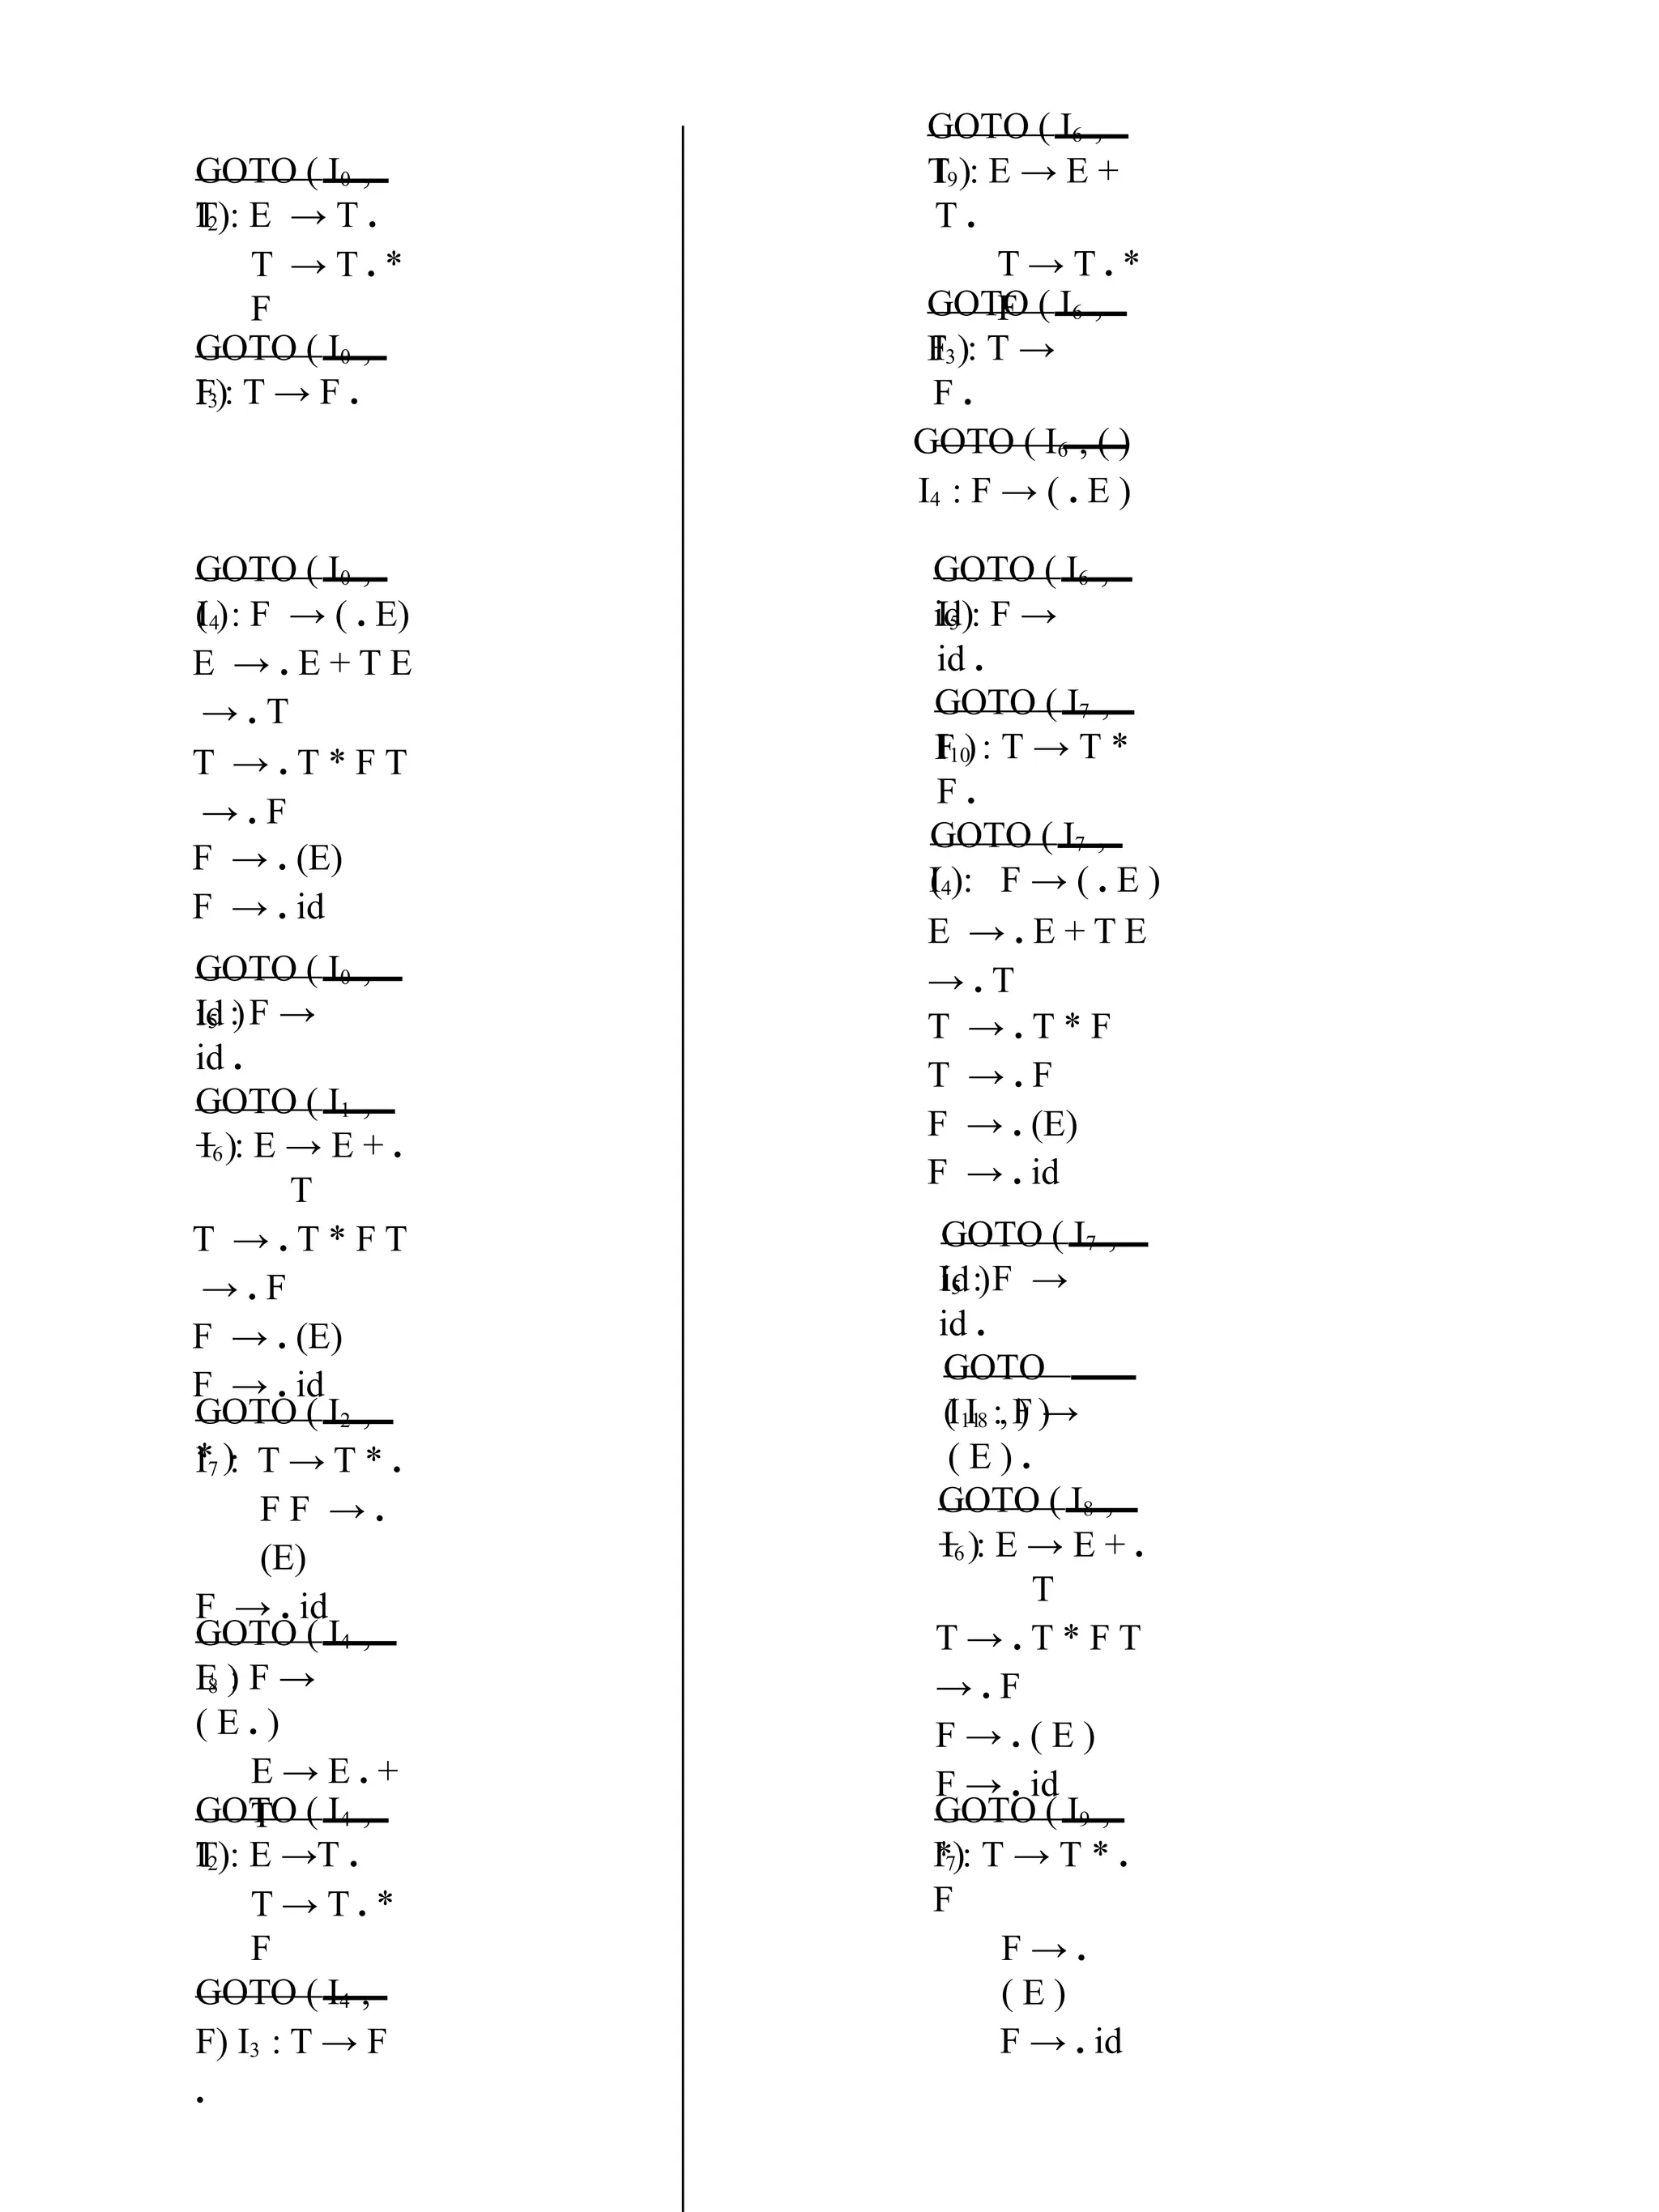 GOTO ( I0 ,
T ) 
I2 : E → T .
T → T . *
F
GOTO ( I0 ,
F )
I3 : T → F .
GOTO ( I0 ,
( )
I4 : F → ( . E)
E → . E + T E
→ . T
T → . T * F T
→ . F
F → . (E)
F → . id
GOTO ( I0 ,
id )
I5 : F →
id .
GOTO ( I1 ,
+ )
I6 : E → E + .
T
T → . T * F T
→ . F
F → . (E)
F → . id
GOTO ( I2 ,
* )
I7 : T → T * .
F F → .
(E)
F → . id
GOTO ( I4 ,
E )
I8 : F →
( E . )
E → E . +
T
GOTO ( I4 ,
T )
I2 : E →T .
T → T . *
F
GOTO ( I4 ,
F) I3 : T → F
.
GOTO ( I6 ,
T )
I9 : E → E +
T .
T → T . *
F
GOTO ( I6 ,
F )
I3 : T →
F .
GOTO ( I6 , ( )
I4 : F → ( . E )
GOTO ( I6 ,
id )
I5 : F →
id .
GOTO ( I7 ,
F )
I10 : T → T *
F .
GOTO ( I7 ,
( )
I4 : F → ( . E )
E → . E + T E
→ . T
T → . T * F
T → . F
F → . (E)
F → . id
GOTO ( I7 ,
id )
I5 : F →
id .
GOTO
( I8 , ) )
I11 : F →
( E ) .
GOTO ( I8 ,
+ )
I6 : E → E + .
T
T → . T * F T
→ . F
F → . ( E )
F → . id
GOTO ( I9 ,
* )
I7 : T → T * .
F
F → .
( E )
F → . id